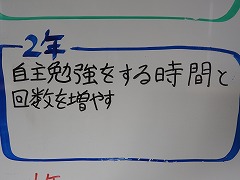 2年
自主勉強をする時間と
回数を増やす
1年